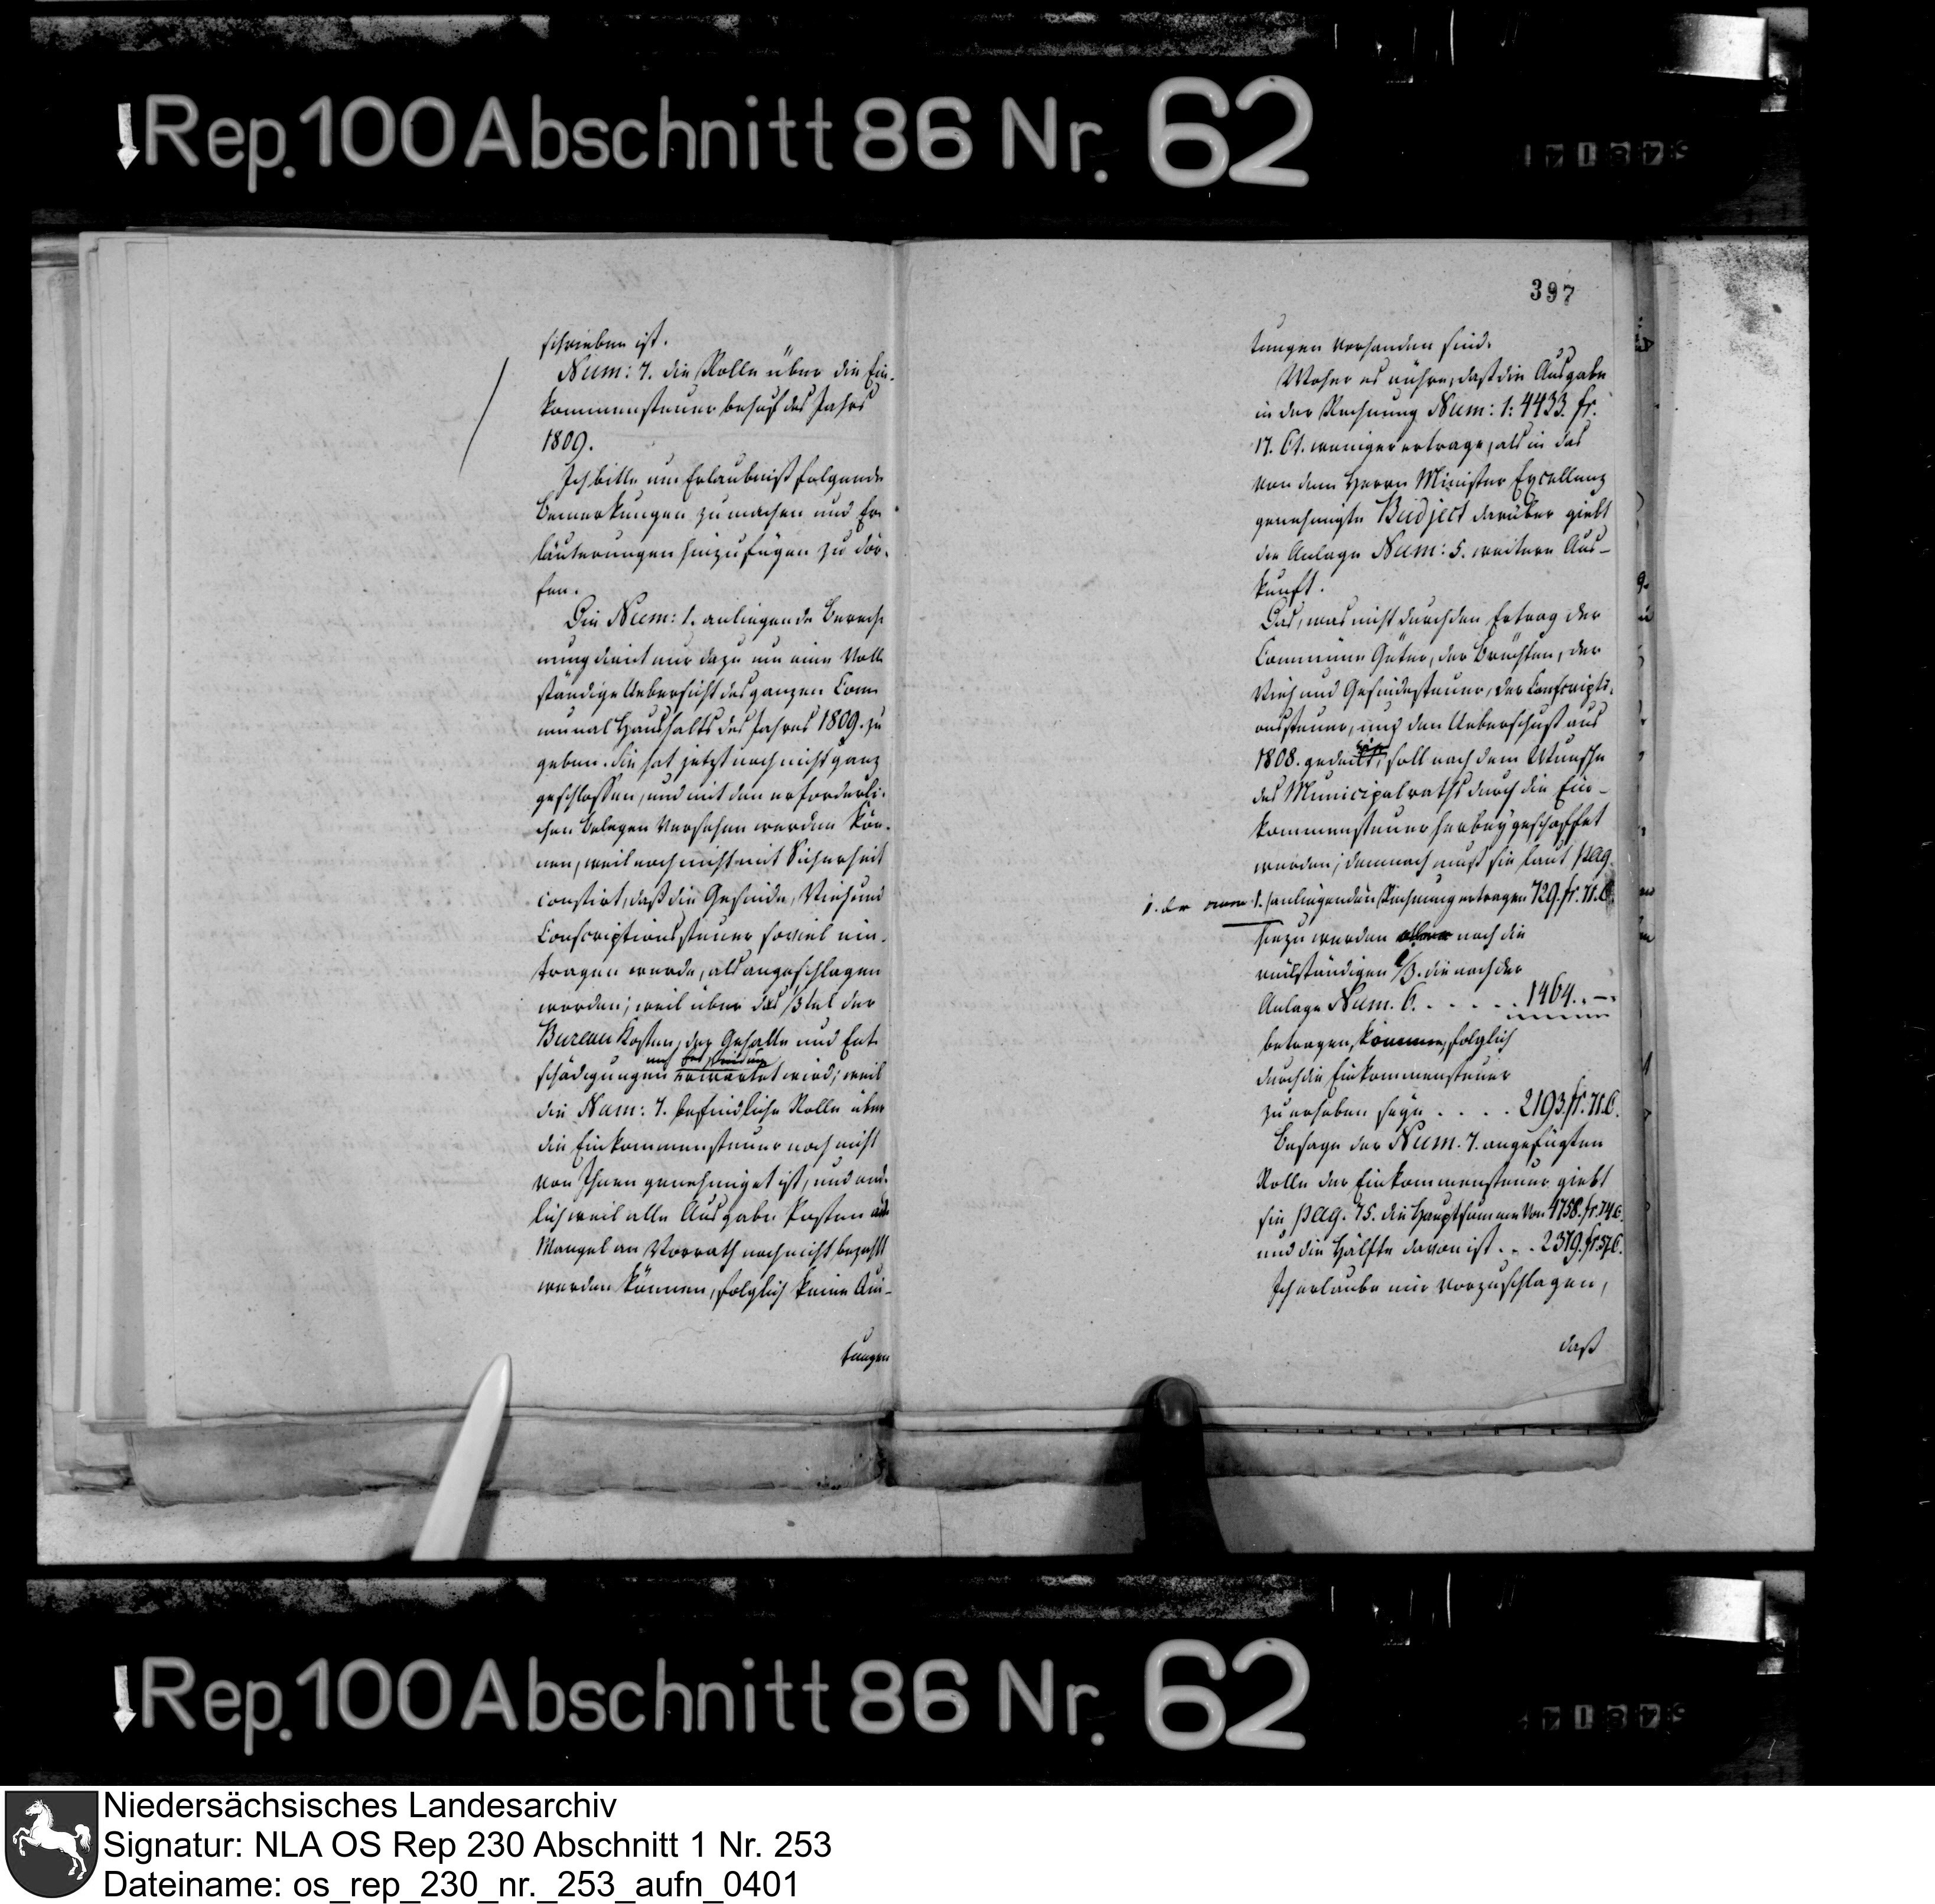 Rep. 100 Abschnitt 86 Nr. 62
schrieben ist.
Num: 7. die Rolle über die Ein-
kommensteuer behuf des Jahrs
1809.
Ich bitte um Erlaubniß folgende
Bemerkungen zu machen und Er-
läuterungen hinzufügen zu dör-
fen.
Die Num: 1. anliegende Berech-
nung dient nur dazu um eine Voll-
ständige Uebersicht des ganzen Com-
munal Haushalts des Jahres 1809. zu
geben. Sie hat jetzt noch nicht ganz
geschlossen, und mit den erforderli-
chen Belegen versehen werden kön-
nen, weil noch nicht mit Sicherheit
constirt, daß die Gesinde, Vieh und
Conscriptionssteuer soviel ein-
tragen werde, als angeschlagen
worden; weil über das 1/3tel der
Bureau Kosten, der Gehalte und Ent-
schädigungen noch Entscheidung
erwartet wird; weil
die Num: 7. befindliche Rolle über
die Einkommensteuer noch nicht
von Ihnen genehmiget ist, und end-
lich weil alle Ausgabe Posten aus
Mangel an Vorrath noch nicht bezahlt
werden können, folglich keine Qui-
tungen
397
tungen vorhanden sind.
Woher es rühre, daß die Ausgabe
in der Rechnung Num: 1: 4433. fr.
17. Ct. weniger ertrage, als in das
von dem Herrn Minister Excellenz
genehmigte Budject darüber giebt
die Anlage Num: 5. weitere Aus-
kunft.
Das, was nicht durch den Ertrag der
Commüne Güter, der Brüchten, der
Vieh und Gesindesteuer, der Conscripti-
onssteuer, und den Ueberschuß aus
1808. gedeckt, soll nach dem Wunsche
des Municipalraths durch die Ein-
kommensteuer herbeygeschaffet
werden; demnach muß sie laut pag.
1. anliegenden Rechnung ertragen 729. fr. 71. C.
hinzu werden noch die
rückständigen 1/3. die nach der
Anlage Num. 6. . . . . . 1464. . —.
betragen, kommen, folglich
durch die Einkommensteuer
zu erheben seyn . . . . 2193. fr. 71. C.
Besage der Num. 7. angefügten
Rolle der Einkommensteuer giebt
sie pag. 75. die Hauptsumme von 4758. fr. 74 C.
und die Hälfte davon ist . . . 2379. fr. 37 C.
Ich erlaube mir vorzuschlagen,
daß
Rep. 100 Abschnitt 86 Nr. 62
Niedersächsisches Landesarchiv
Signatur: NLA OS Rep 230 Abschnitt 1 Nr. 253
Dateiname: os_rep_230_nr._253_aufn_0401